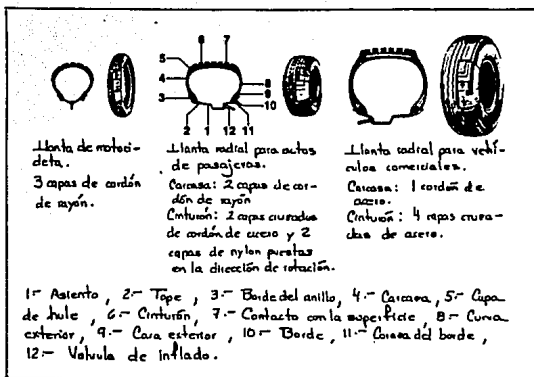 6 7
5
4
3
8
9
10
2 1 12 11
Llanta de motoci-
cleta.
3 capas de cordón
de rayón.
Llanta radial para autos
de pasajeros.
Carcasa: 2 capas de cor-
dón de rayón
Cinturón: 2 capas cruzadas
de cordón de acero y 2
capas de nylon puestas
en la dirección de rotación.
Llanta radial para vehí-
culos comerciales.
Carcasa: 1 cordón de
acero.
Cinturón: 4 capas cruza-
das de acero.
1.- Asiento, 2.- Tope, 3.- Borde del anillo, 4.- Carcasa, 5.- Capa
de hule, 6.- Cinturón, 7.- Contacto con la superficie, 8.- Curva
exterior, 9.- Cara exterior, 10.- Borde, 11.- del borde,
12.- Valvula de inflado.